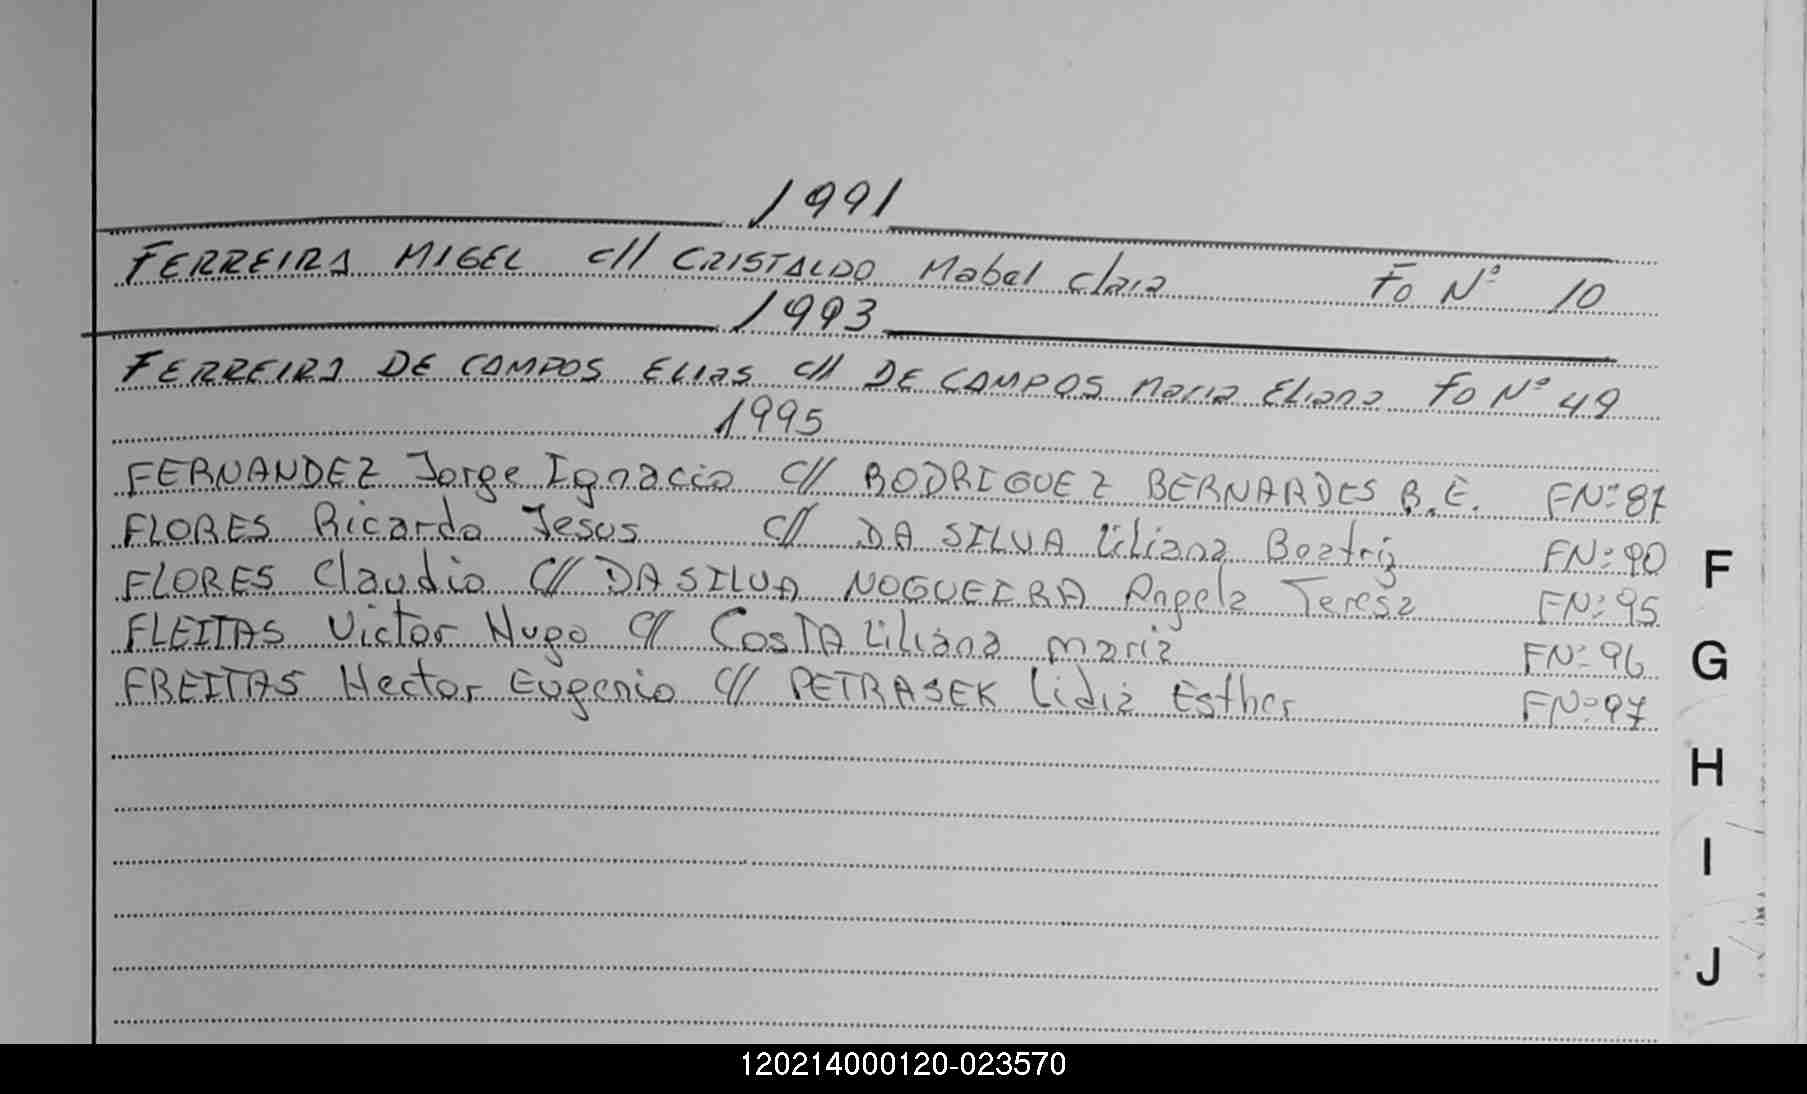 1991
FERREIRA MIGEL c// CRISTALDO Mabel Clara Fo Nº 10
1993
FERREIRA DE CAMPOS ELIAS c// DE CAMPOS Maria Eliana Fo Nº 49
1995
FERNANDEZ Jorge Ignacio C// RODRIGUEZ BERNARDES B.E. FNº 87
FLORES Ricardo Jesus C// DA SILVA Liliana Beatriz FNº 90
FLORES Claudio C// DA SILVA NOGUEIRA Angela Teresa FNº 95
FLEITAS Victor Hugo C// COSTA Liliana maria FNº 96
FREITAS Hector Eugenio C// PETRASEK Lidia Esther FNº 97
F
G
H
I
J
120214000120-023570